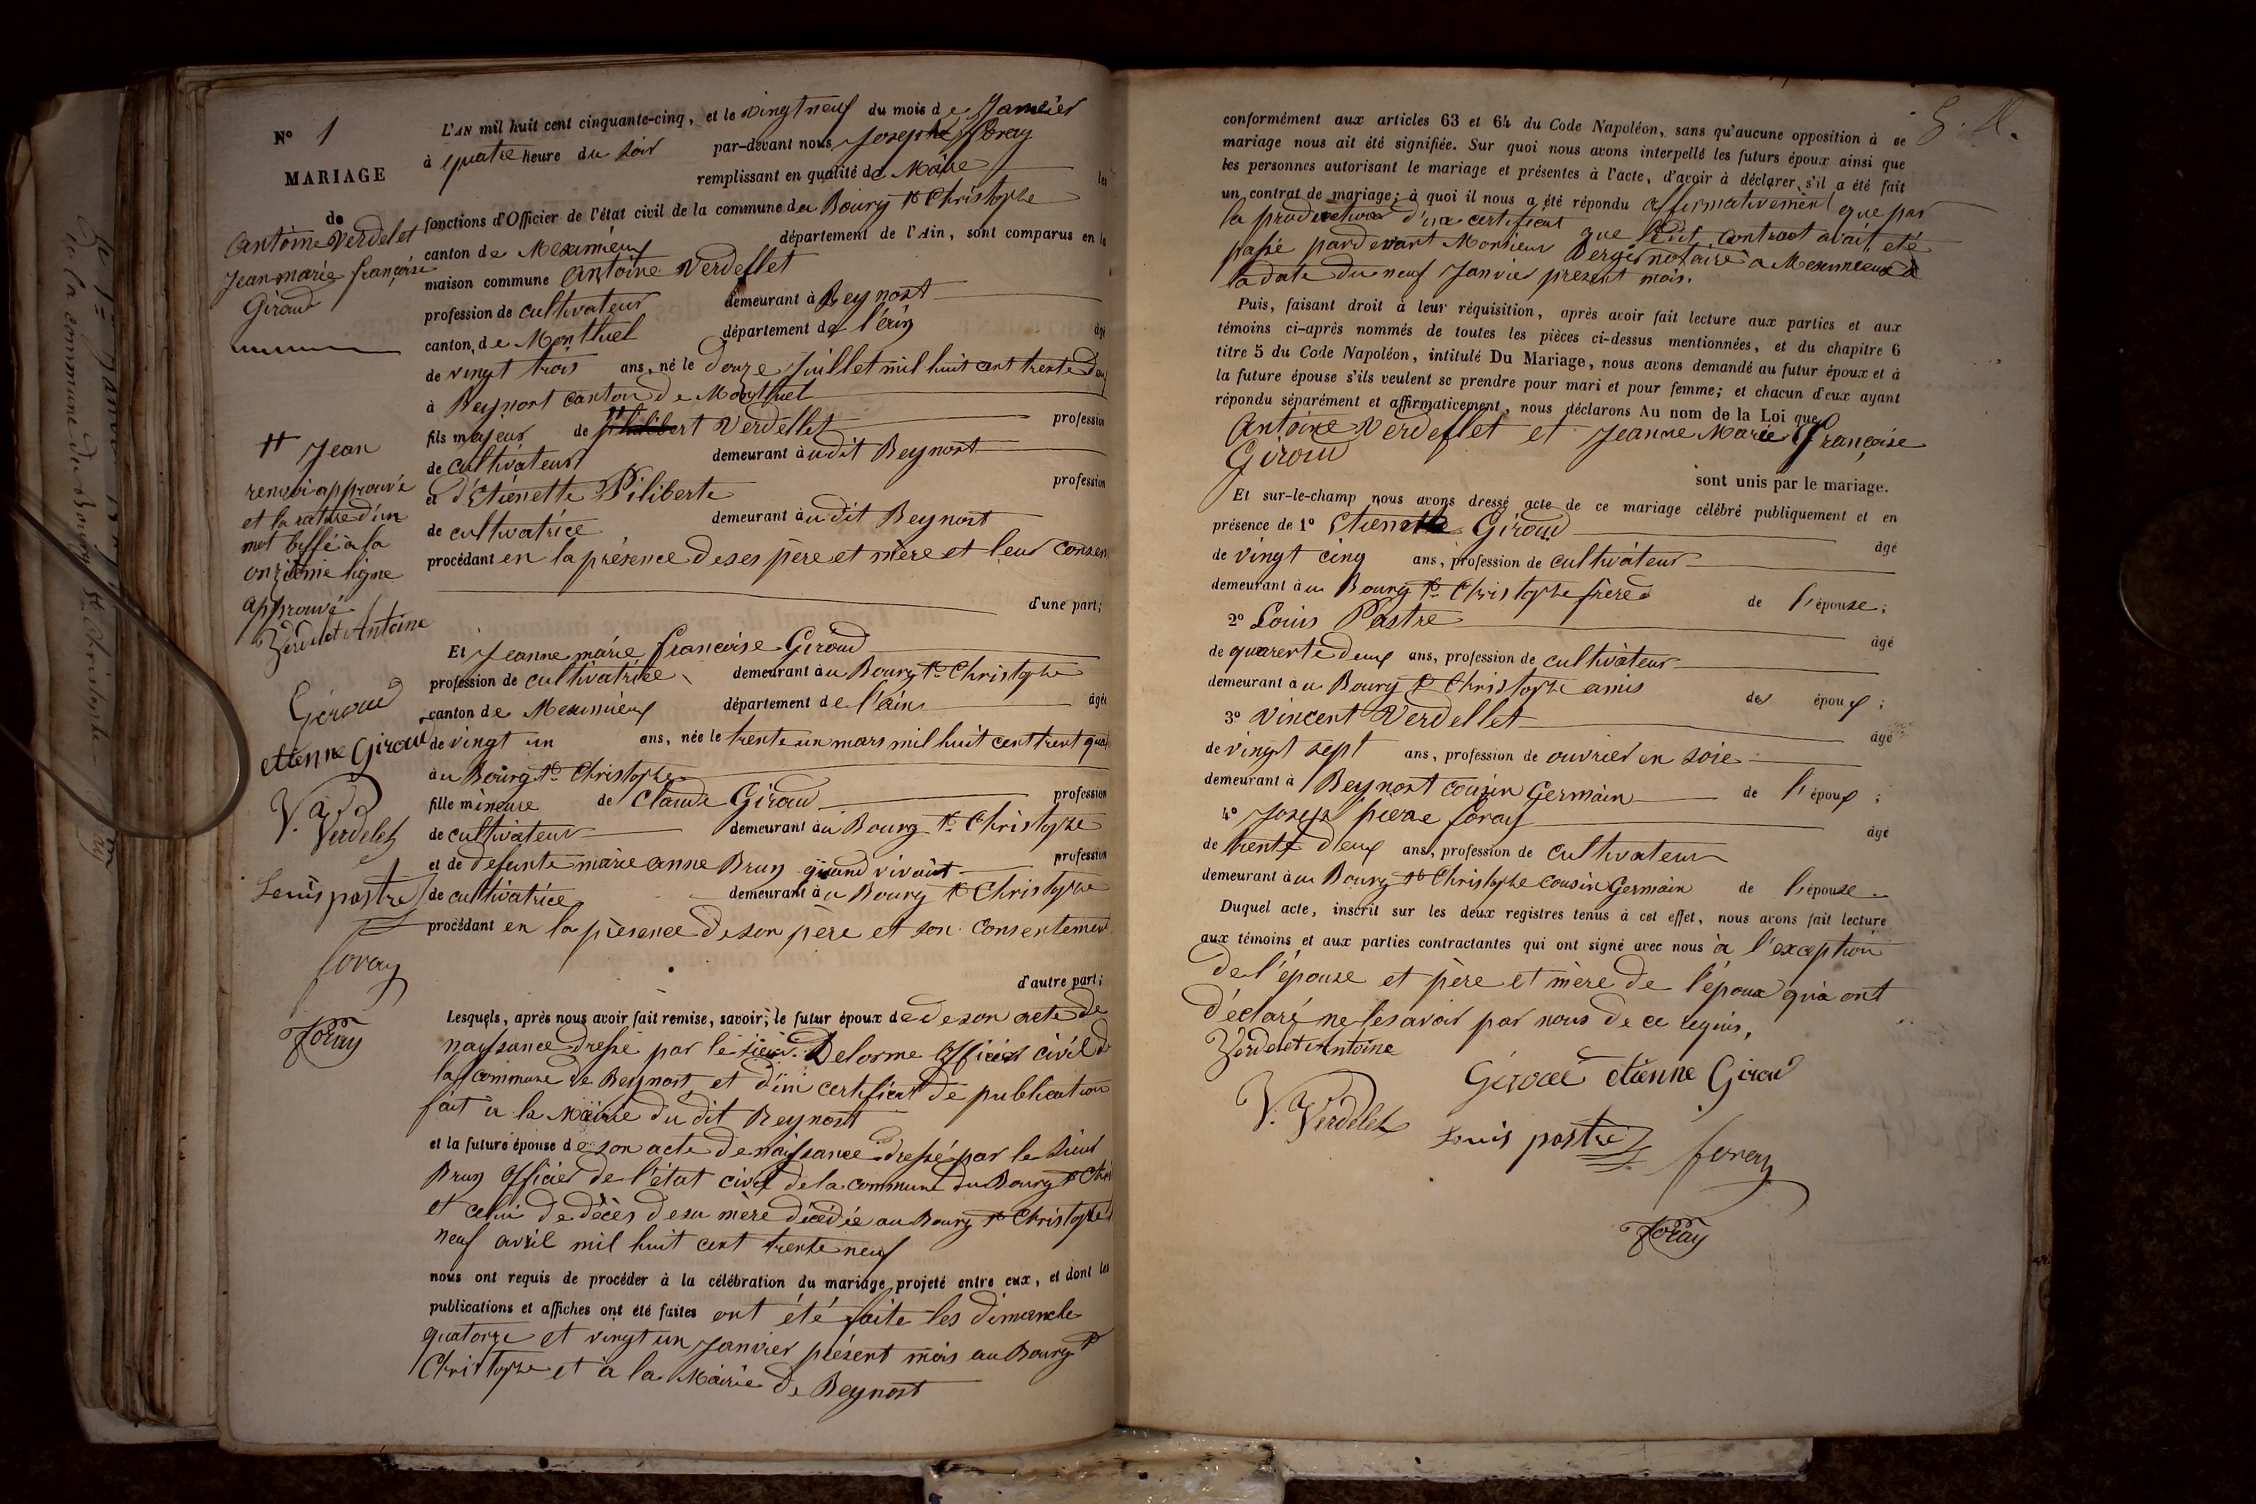 N° 1
MARIAGE
de
Antoine Verdelet
Jean marie françoise
Giroud
L'AN mil huit cent cinquante-cinq, et le vingt neuf du mois de Janvier
à quatre heure du soir par-devant nous Joseph foray
remplissant en qualité de Maire les
fonctions d'Officier de l'état civil de la commune du Bourg St Christophe
canton de Meximieux département de l'Ain, sont comparus en la
maison commune Antoine Verdellet
profession de cultivateur demeurant à Beynost
canton de Montluel département de l'ain âgé
de vingt trois ans, né le douze Juillet mil huit cent trente
à Beynost canton de Montluel
fils majeur de Verdellet profession
de cultivateur demeurant audit Beynost
et d'Etienette Piliberte profession
de cultivatrice demeurant audit Beynost
procédant en la présence de ses père et mère et leur consen
d'une part;
Et Jeanne marie françoise Giroud
profession de cultivatrice demeurant au Bourg St Christophe
canton de Meximieux département de l'ain âgée
de vingt un ans, née le trente un mars mil huit cent trent
au Bourg St Christophe
fille mineure de Claude Giroud profession
de cultivateur demeurant au Bourg St Christophe
et de defunte marie anne Brun quand vivait profession
de cultivatrice demeurant au Bourg St Christophe
procédant en la présence de son père et son consentement
d'autre part;
Lesquels, après nous avoir fait remise, savoir; le futur époux de de son acte de
naissance dressé par le sieur Delorme Officier civil de
la commune de Beynost et d'un certificat de publication
fait à la Mairie du dit Beynost
et la future épouse de son acte de naissance dressé par le Sieur
Brun Officier de l'état civil de la commune du Bourg St
et celui de décès de sa mère décédée au Bourg St Christophe
neuf avril mil huit cent trente neuf
nous ont requis de procéder à la célébration du mariage projeté entre eux, et dont les
publications et affiches ont été faites ont été faite les dimanche
quatorze et vingt un Janvier présent mois au Bourg St
Christophe et à la Mairie de Beynost
†† Jean
renvoi approuvé
et la rature d'un
mot biffé à la
onzième ligne
approuvé
Verdelet Antoine
Giroud
etienne Giroud
V. Verdelet
Louis pastre
foray
Foray
conformément aux articles 63 et 64 du Code Napoléon, sans qu'aucune opposition à ce
mariage nous ait été signifiée. Sur quoi nous avons interpellé les futurs époux ainsi que
les personnes autorisant le mariage et présentes à l'acte, d'avoir à déclarer s'il a été fait
un contrat de mariage; à quoi il nous a été répondu affirmativement que par
la production d'un certificat que ledit contract avait été
passé pardevant Monsieur notaire à Meximieux à
la date du neuf Janvier présent mois.
Puis, faisant droit à leur réquisition, après avoir fait lecture aux parties et aux
témoins ci-après nommés de toutes les pièces ci-dessus mentionnées, et du chapitre 6
titre 5 du Code Napoléon, intitulé Du Mariage, nous avons demandé au futur époux et à
la future épouse s'ils veulent se prendre pour mari et pour femme; et chacun d'eux ayant
répondu séparément et affirmativement, nous déclarons Au nom de la Loi que
Antoine Verdellet et Jeanne Marie Françoise
Giroud
sont unis par le mariage.
Et sur-le-champ nous avons dressé acte de ce mariage célébré publiquement et en
présence de 1° Giroud âgé
de vingt cinq ans, profession de cultivateur
demeurant au Bourg St Christophe frère de l'épouse;
2° Louis Pastre âgé
de quarente deux ans, profession de cultivateur
demeurant au Bourg St Christophe amis des époux;
3° Vincent Verdellet âgé
de vingt sept ans, profession de ouvrier en soie
demeurant à Beynost cousin Germain de l'époux;
4° Joseph pierre foray âgé
de trente deux ans, profession de cultivateur
demeurant au Bourg St Christophe cousin Germain de l'épouse
Duquel acte, inscrit sur les deux registres tenus à cet effet, nous avons fait lecture
aux témoins et aux parties contractantes qui ont signé avec nous à l'exception
de l'épouse et père et mère de l'époux qui ont
déclaré ne le savoir par nous de ce requis.
Verdelet Antoine
Giroud etienne Giroud
V. Verdelet
Louis pastre foray
Foray